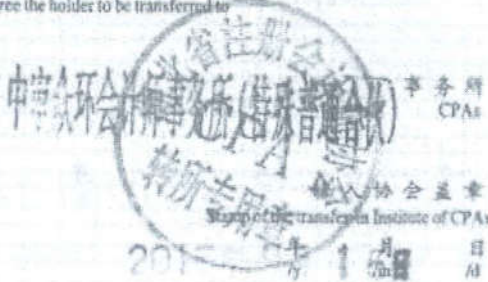 ree the holder to be transferred to
中审众环会计师事务所(特殊普通合伙)
事务所
CPAs
省注册会
CPA
转所专用章
转入协会盖章
Stamp of the transfer-in Institute of CPAs
年 月 日
201 1
/y /m /d